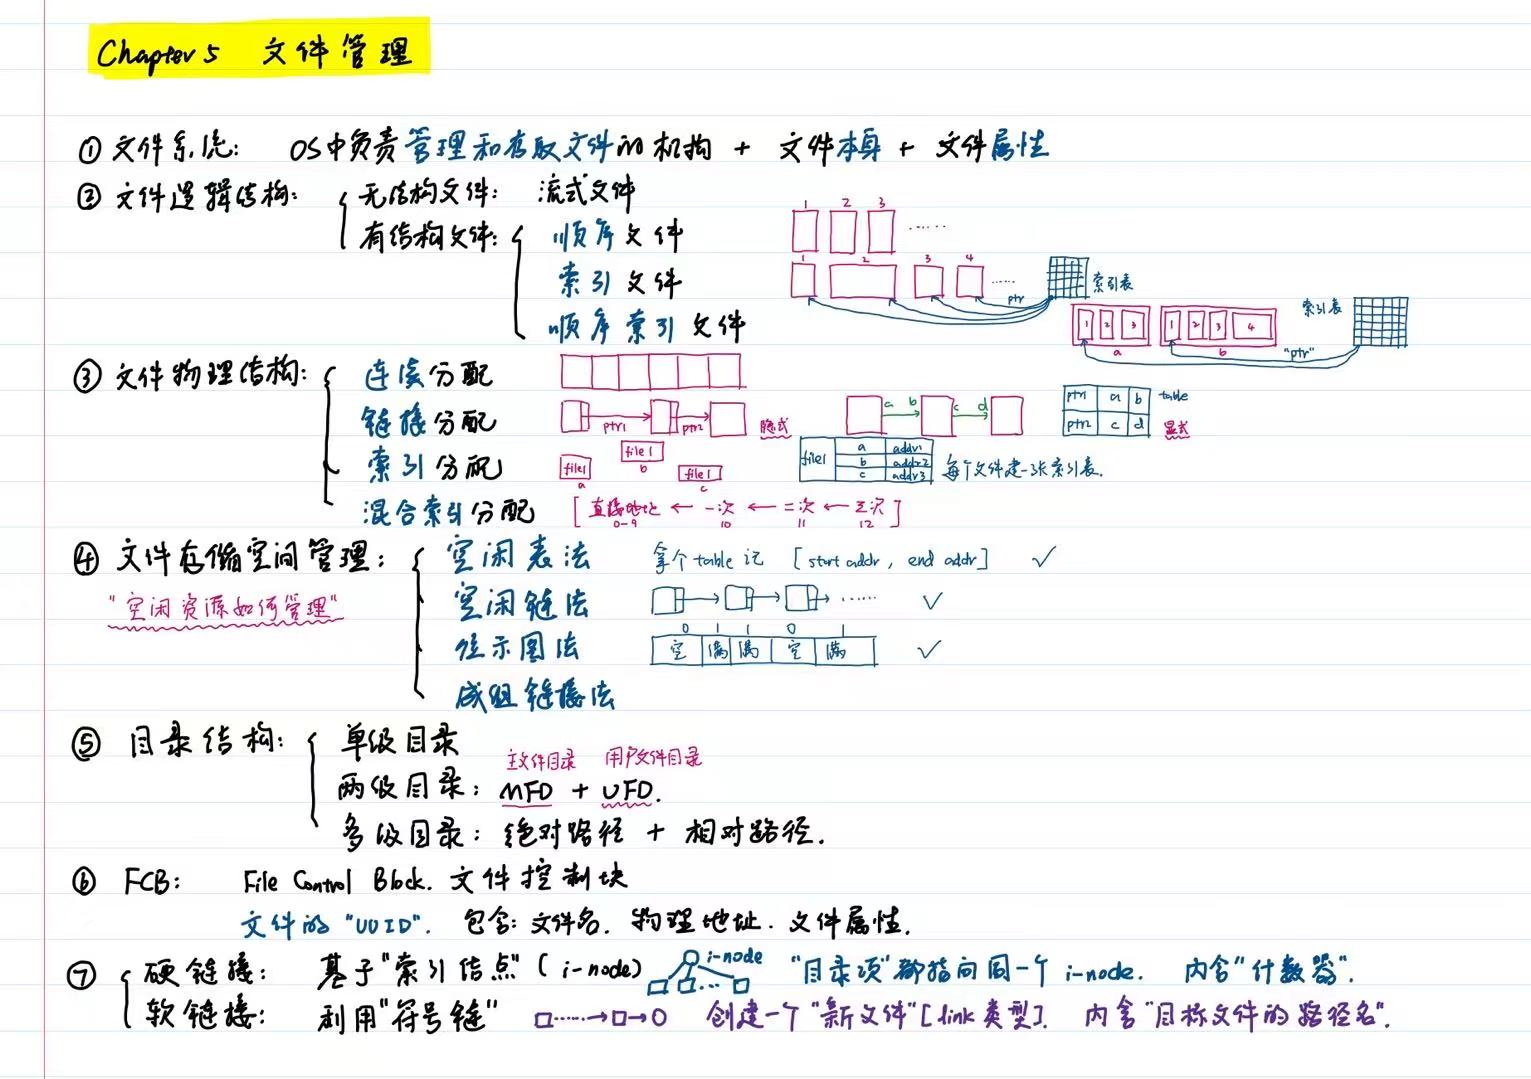 Chapter 5 文件管理
① 文件系统: OS中负责管理和存取文件的机构 + 文件本身 + 文件属性
② 文件逻辑结构: 无结构文件: 流式文件
1 2 3 ......
有结构文件: 顺序文件
1 2 3 4 ...... ptr 索引表
索引文件
1 2 3 a 1 2 3 4 b "ptr" 索引表
顺序索引文件
③ 文件物理结构: 连续分配
链接分配 ptr1 ptr2 隐式 a b c d ptr1 a b table ptr2 c d 显式
索引分配 file1 a file1 b file1 c file1 a addr1 b addr2 c addr3 每个文件建一张索引表.
混合索引分配 [直接地址 ← 一次 ← 二次 ← 三次]
0-9 10 11 12
④ 文件存储空间管理: 空闲表法 拿个table记 [start addr, end addr] ✓
"空闲资源如何管理"
空闲链法 ...... ✓
0 1 1 0 1
位示图法 空 满 满 空 满 ✓
成组链接法
⑤ 目录结构: 单级目录
主文件目录 用户文件目录
两级目录: MFD + UFD.
多级目录: 绝对路径 + 相对路径.
⑥ FCB: File Control Block. 文件控制块
文件的"UUID". 包含: 文件名. 物理地址. 文件属性.
⑦ 硬链接: 基于"索引结点" (i-node) i-node "目录项"都指向同一个 i-node. 内含"计数器".
软链接: 利用"符号链" 创建一个"新文件" [link类型]. 内含"目标文件的路径名".